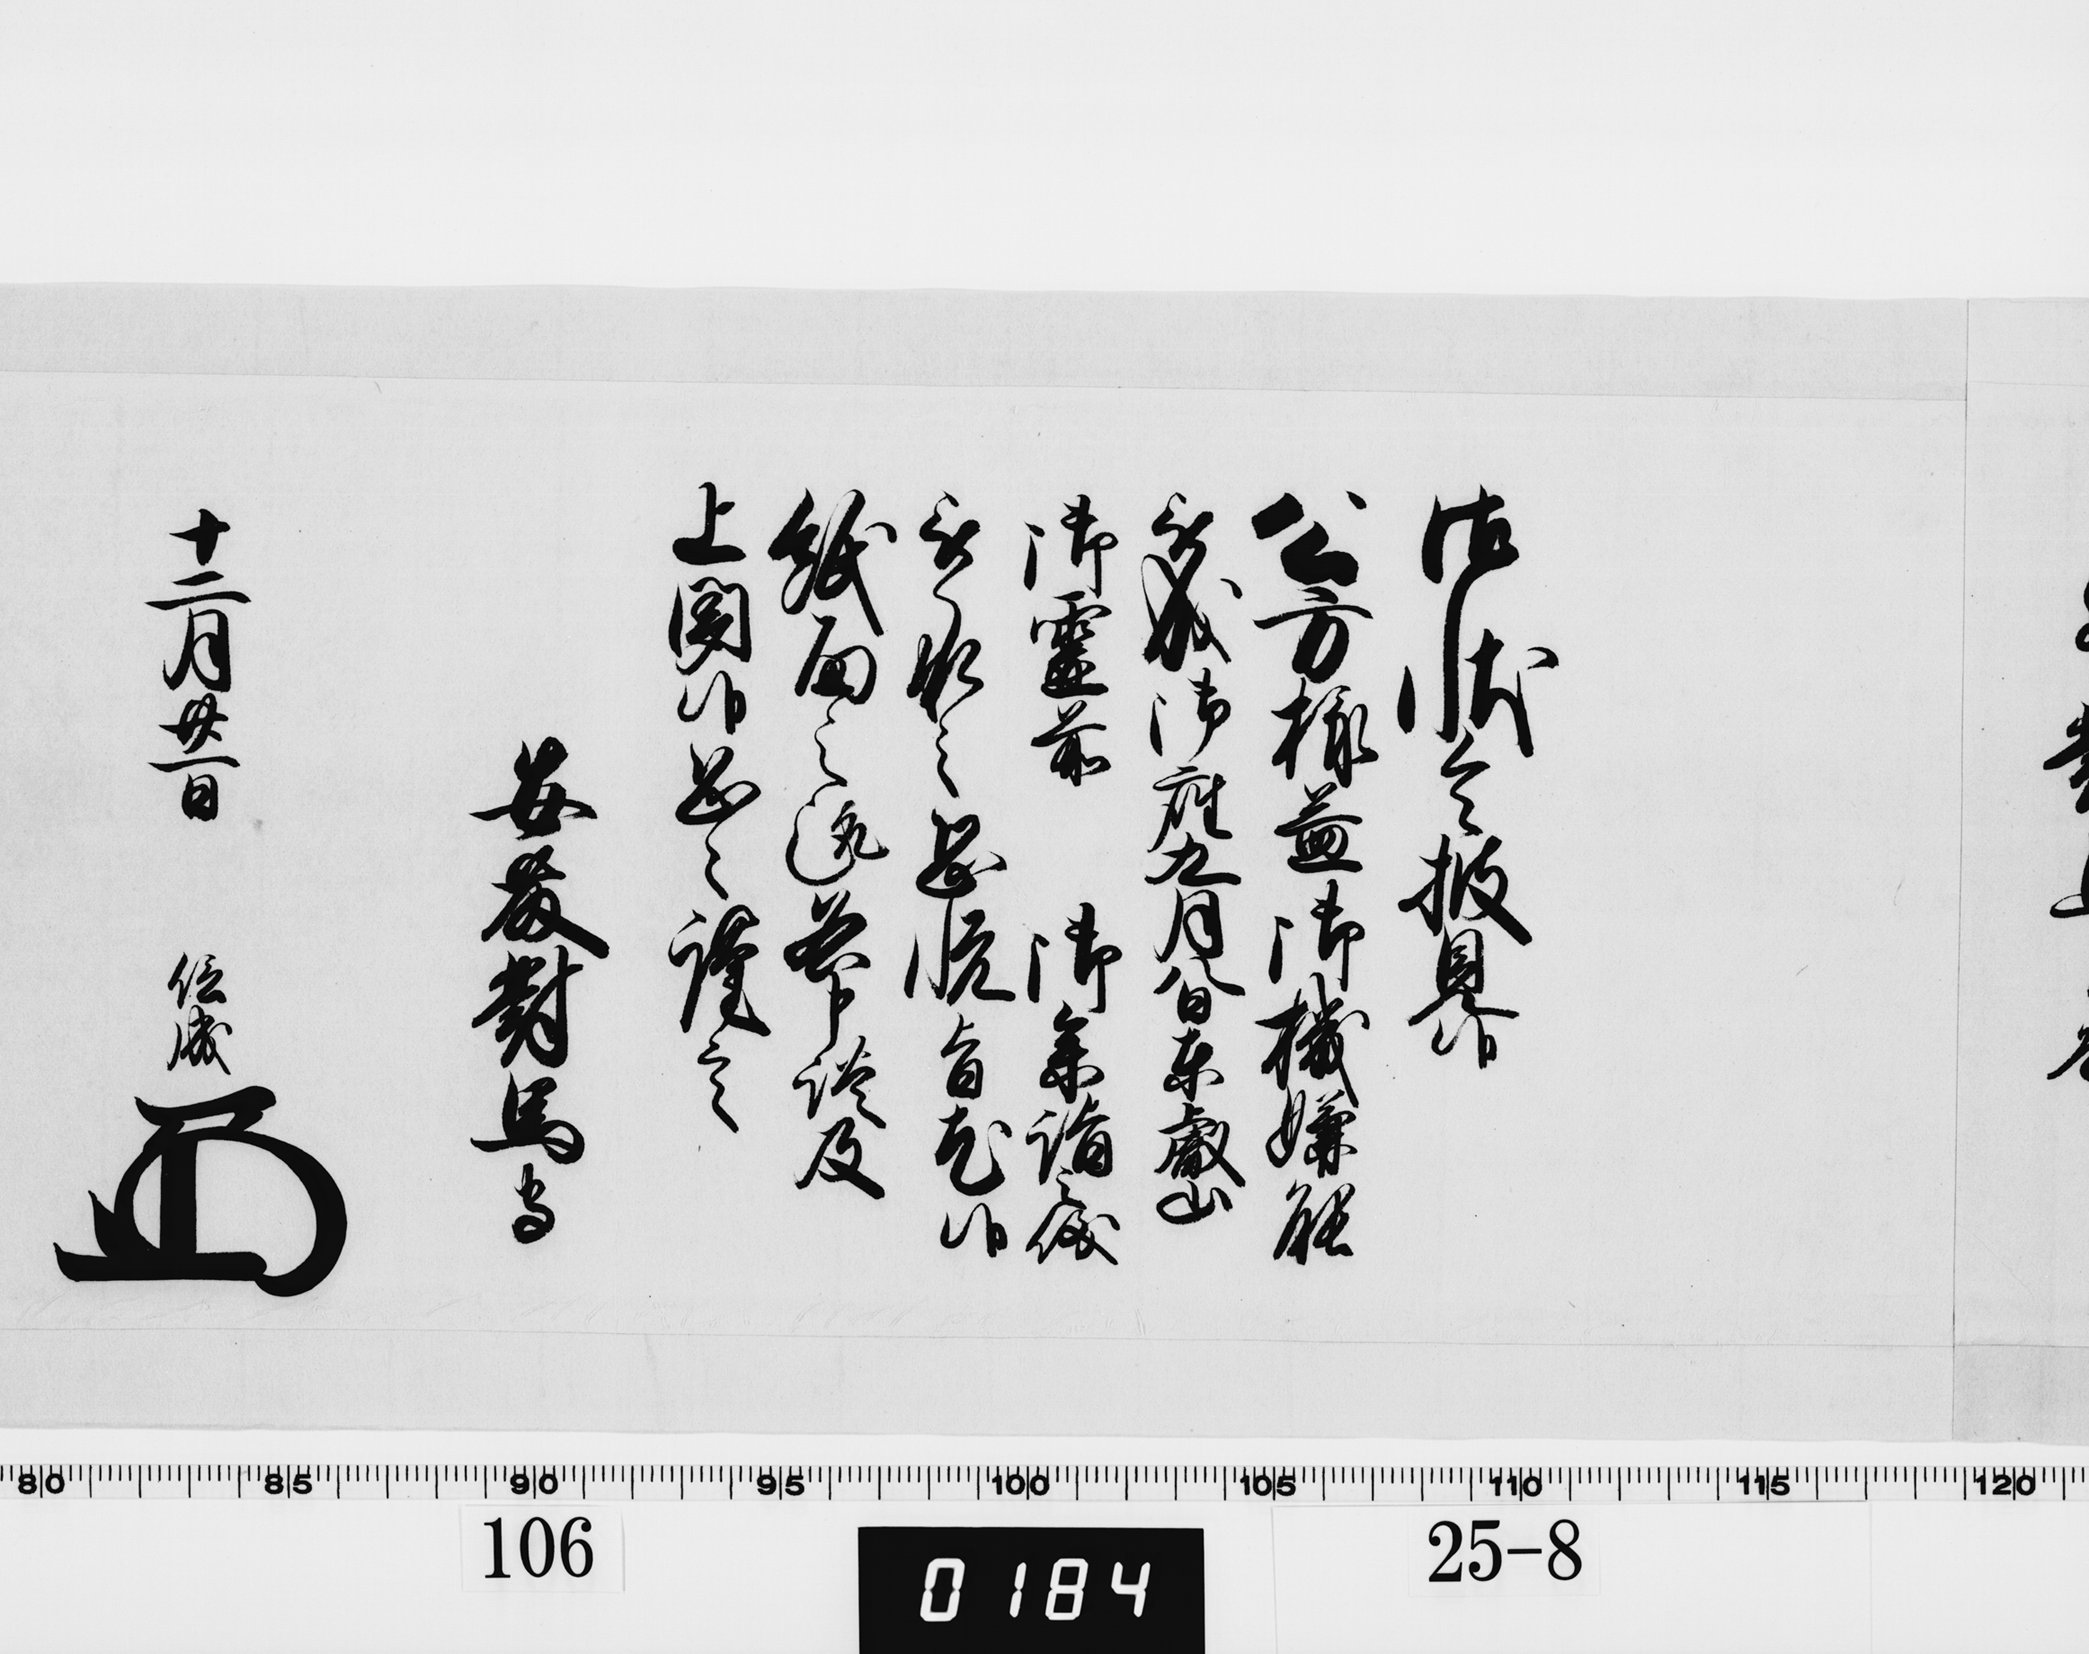 御状令披見候
公方様益御機嫌能
被成御座九月八日東叡山
御霊前 御参詣之儀
被承之恐悦旨尤候
紙面之趣各申談及
上聞候恐々謹言
安藤對馬守
十二月廿一日 信成
80 85 90 95 100 105 110 115 120
106
0184
25-8